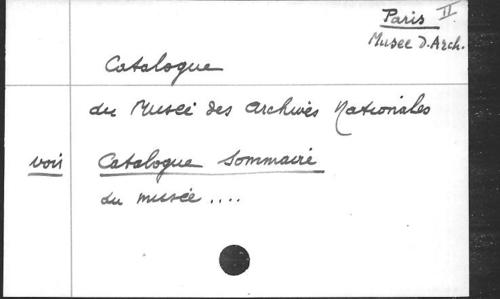 Paris II.
Musee D.Arch.
Catalogue
du Musée des Archives Nationales
voir Catalogue Sommaire
du musée ....